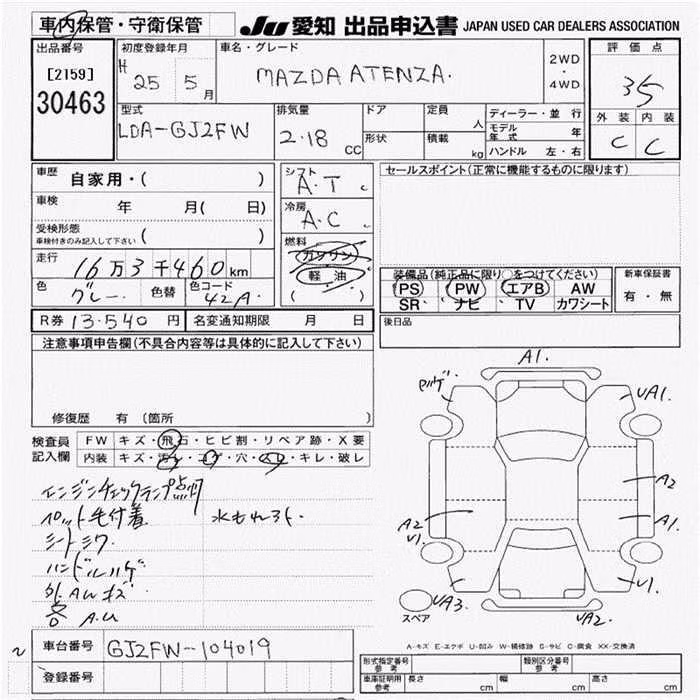 車内保管・守衛保管 JU 愛知 出品申込書 JAPAN USED CAR DEALERS ASSOCIATION
出品番号
[2159]
30463
初度登録年月
H 25 5 月
車名・グレード
MAZDA ATENZA.
2WD
・
4WD
評価点
3.5
外装 内装
C C
型式
LDA-GJ2FW
排気量
2.18 CC
ドア
形状
定員 人
積載 kg
ディーラー・並行
モデル年式 年
ハンドル 左・右
車歴 自家用・( )
車検 年 月( 日)
受検形態
車検付きのみ記入して下さい ( )
走行 16万3千460km
色 グレー 色替 色コード 42A.
シフト
A.T
冷房
A.C
燃料
ガソリン
軽油
( )
セールスポイント(正常に機能するものに限ります)
装備品(純正品に限り○をつけてください)
PS PW エアB AW
SR ナビ TV カワシート
新車保証書
有・無
R券 13.540 円 名変通知期限 月 日
後日品
注意事項申告欄(不具合内容等は具体的に記入して下さい)
修復歴 有 (箇所 )
検査員記入欄
FW キズ・飛石・ヒビ割・リペア跡・X要
内装 キズ・汚レ・コゲ・穴・スレ・キレ・破レ
エンジンチェックランプ点灯
ペット毛付着 水もれ跡
シートシワ
ハンドルハゲ
外AUキズ
各A.U
A1.
ハゲ
UA1.
A2
A1.
A2
U1.
U1.
UA3.
UA2.
スペア
A-キズ E-エクボ U-凹み W-補修跡 S-サビ C-腐食 XX-交換済
車台番号 GJ2FW-104019
登録番号
形式指定番号 参考
類別区分番号 参考
車庫証明用 参考 長さ cm 幅 cm 高さ cm